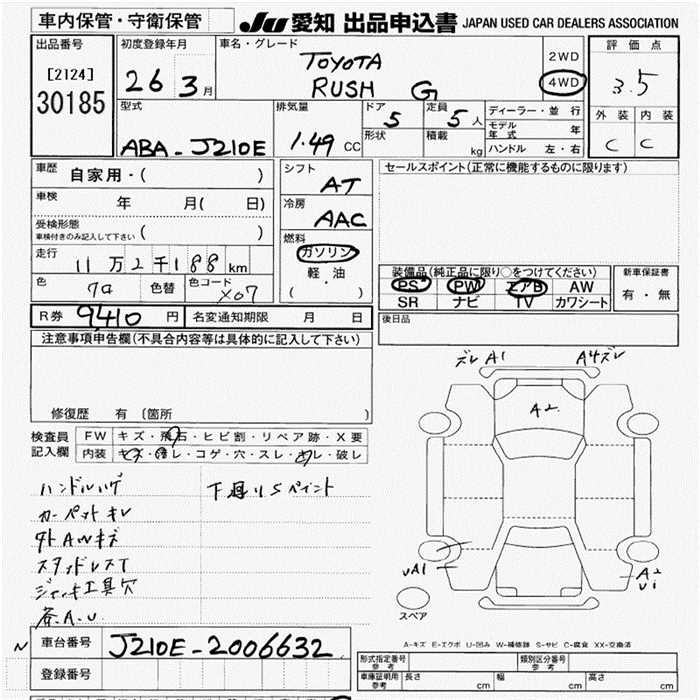 車内保管・守衛保管
JU 愛知 出品申込書 JAPAN USED CAR DEALERS ASSOCIATION
出品番号
[2124]
30185
初度登録年月
26 3月
車名・グレード
TOYOTA
RUSH G
2WD
4WD
評価点
3.5
外装 内装
C C
型式
ABA-J210E
排気量
1.49 CC
ドア
5
形状
定員
5人
積載
kg
ディーラー・並行
モデル年式 年
ハンドル 左・右
車歴
自家用・( )
車検
年 月( 日)
受検形態
車検付きのみ記入して下さい ( )
走行
11万2千188km
色
クロ
色替
色コード
X07
シフト
AT
冷房
AAC
燃料
ガソリン
軽・油
( ・ )
セールスポイント(正常に機能するものに限ります)
装備品(純正品に限り○をつけてください)
PS PW エアB AW
SR ナビ TV カワシート
新車保証書
有・無
R券 9410 円
名変通知期限 月 日
後日品
注意事項申告欄(不具合内容等は具体的に記入して下さい)
修復歴 有 [箇所 ]
検査員記入欄
FW キズ・飛石・ヒビ割・リペア跡・X要
内装 キズ・汚レ・コゲ・穴・スレ・キレ・破レ
ハンドルハゲ
下廻りSペイント
カーペットキレ
外AWキズ
スタッドレスT
ジャッキ工具欠
各A.U.
ズレ A1
A4ズレ
A2
UA1
A2
Ui
スペア
A-キズ E-エクボ U-凹み W-補修跡 S-サビ C-腐食 XX-交換済
N
車台番号
J210E-2006632
登録番号
形式指定番号
参考
類別区分番号
参考
車庫証明用
参考
長さ cm 幅 cm 高さ cm